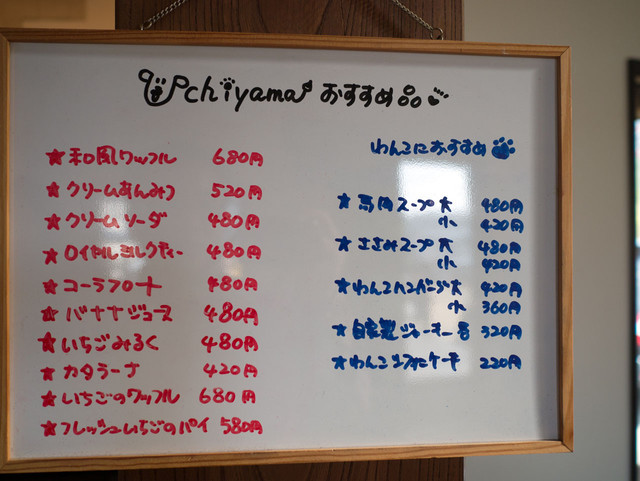 Uchiyama おすすめ品
★和風ワッフル 680円
★クリームあんみつ 520円
★クリームソーダ 480円
★ロイヤルミルクティー 480円
★コーラフロート 480円
★バナナジュース 480円
★いちごみるく 480円
★カタラーナ 420円
★いちごのワッフル 680円
★フレッシュいちごのパイ 580円
わんこにおすすめ
★馬肉スープ 大 480円
小 420円
★ささみスープ 大 480円
小 420円
★わんこハンバーグ 大 420円
小 360円
★自家製ジャーキー 320円
★わんこシフォンケーキ 220円